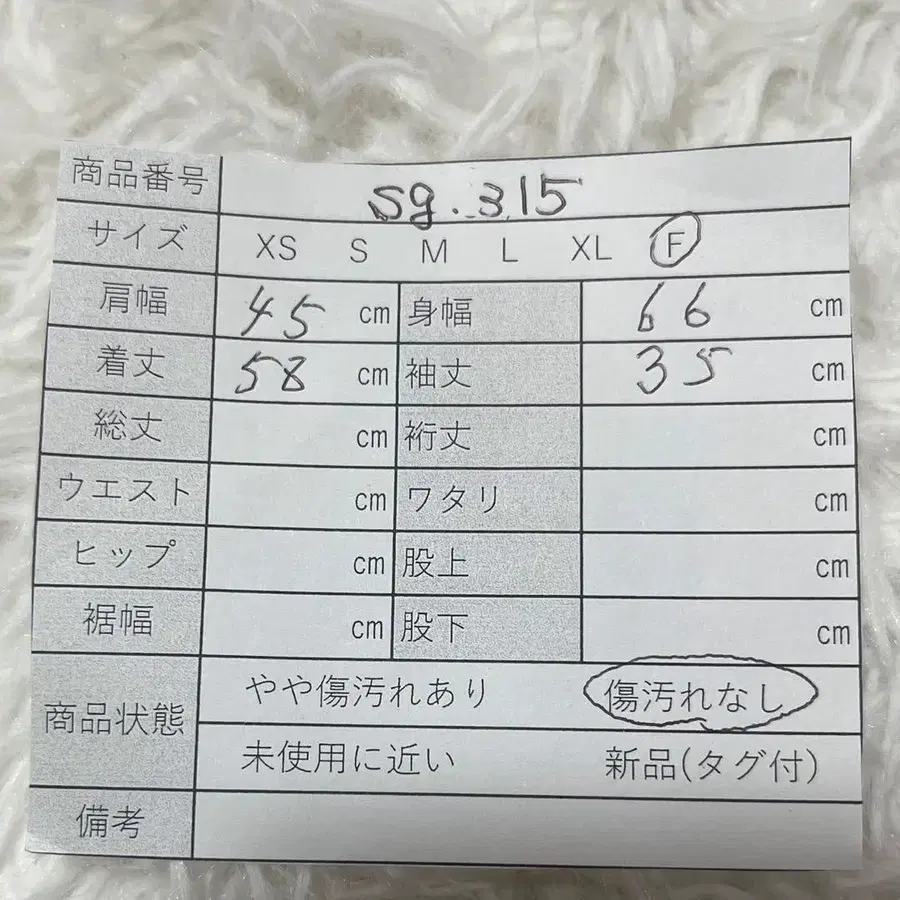 商品番号 sg.315
サイズ XS S M L XL F
肩幅 45 cm 身幅 66 cm
着丈 58 cm 袖丈 35 cm
総丈 cm 裄丈 cm
ウエスト cm ワタリ cm
ヒップ cm 股上 cm
裾幅 cm 股下 cm
商品状態 やや傷汚れあり 傷汚れなし
未使用に近い 新品(タグ付)
備考